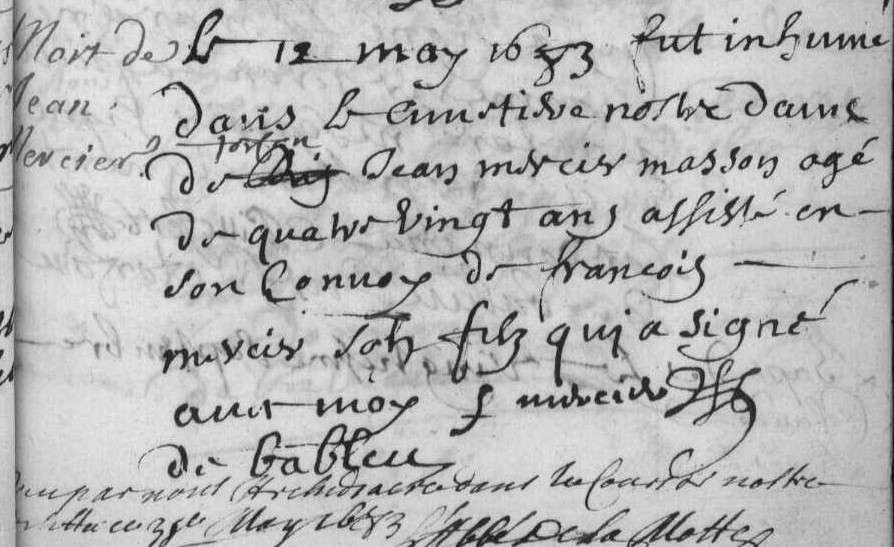 Mort de
Jean
Mercier
Le 12 may 1683 fut inhumé
dans le Cimetiere nostre dame
de Jean mercier masson agé
de quatre vingt ans assisté en
son Convoy de francois
mercier son filz qui a signé
avec moy f mercier
de bableu
par nous Archidiacre dans le Cours de nostre
May 1683 L'Abbé De La Motte